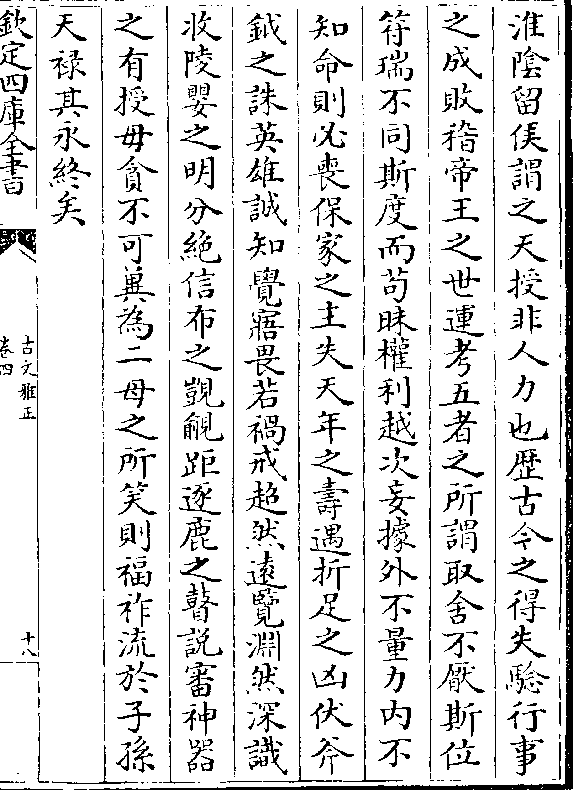 淮隂留侯謂之天授非人力也歴古今之得失驗行事
之成敗稽帝王之世運考五者之所謂取舍不厭斯位
符瑞不同斯度而茍昧權利越次妄據外不量力内不
知命則必喪保家之主失天年之壽遇折足之凶伏斧
鉞之誅英雄誠知覺寤畏若禍戒超然逺覽淵然深識
收陵嬰之明分絶信布之覬覦距逐鹿之瞽説審神器
之有授毋貪不可兾為二母之所笑則福祚流於子孫
天禄其永終矣
欽定四庫全書
古文雅正
卷四
十八